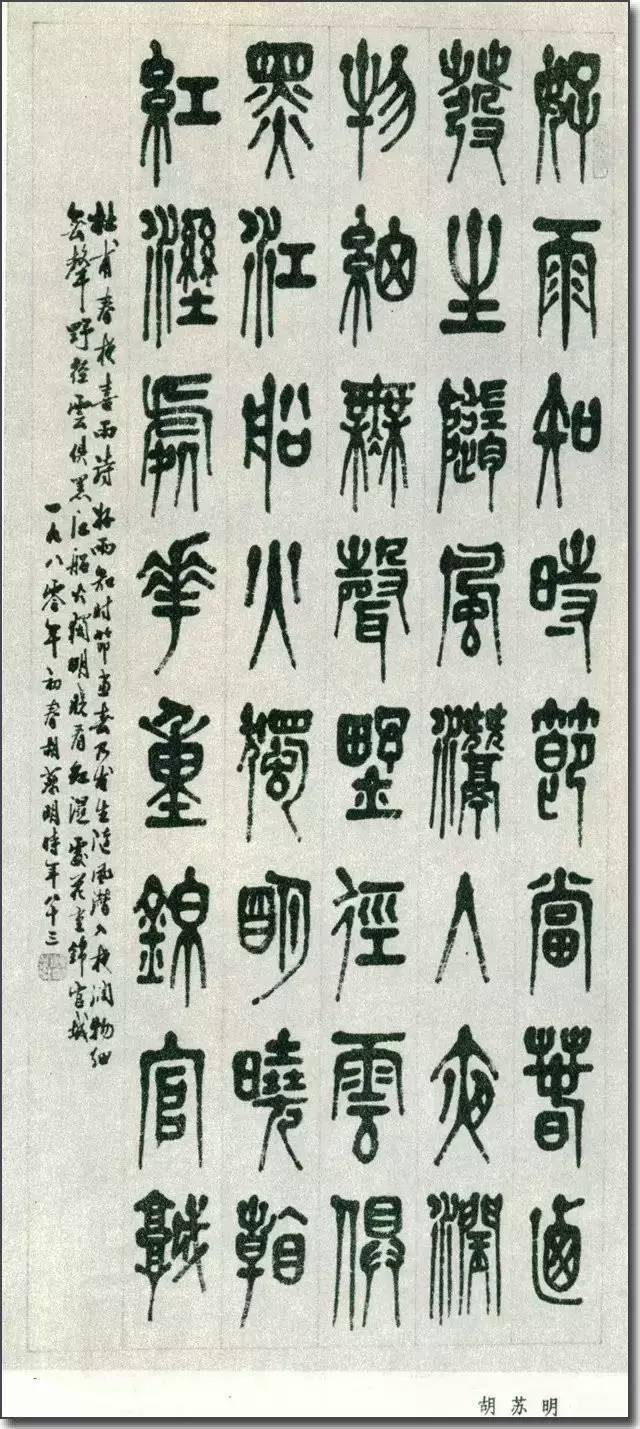 好雨知時節當春迺
發生隨風潛入夜潤
物細無聲野徑雲俱
黑江船火獨明曉看
紅溼處華重錦官城
杜甫春夜喜雨詩好雨知时節當春乃發生随風潜入夜润物细
無聲野徑雲俱黑江船火獨明曉看紅濕處花重錦官城
一九八零年初春胡蘇明時年八十三
胡苏明